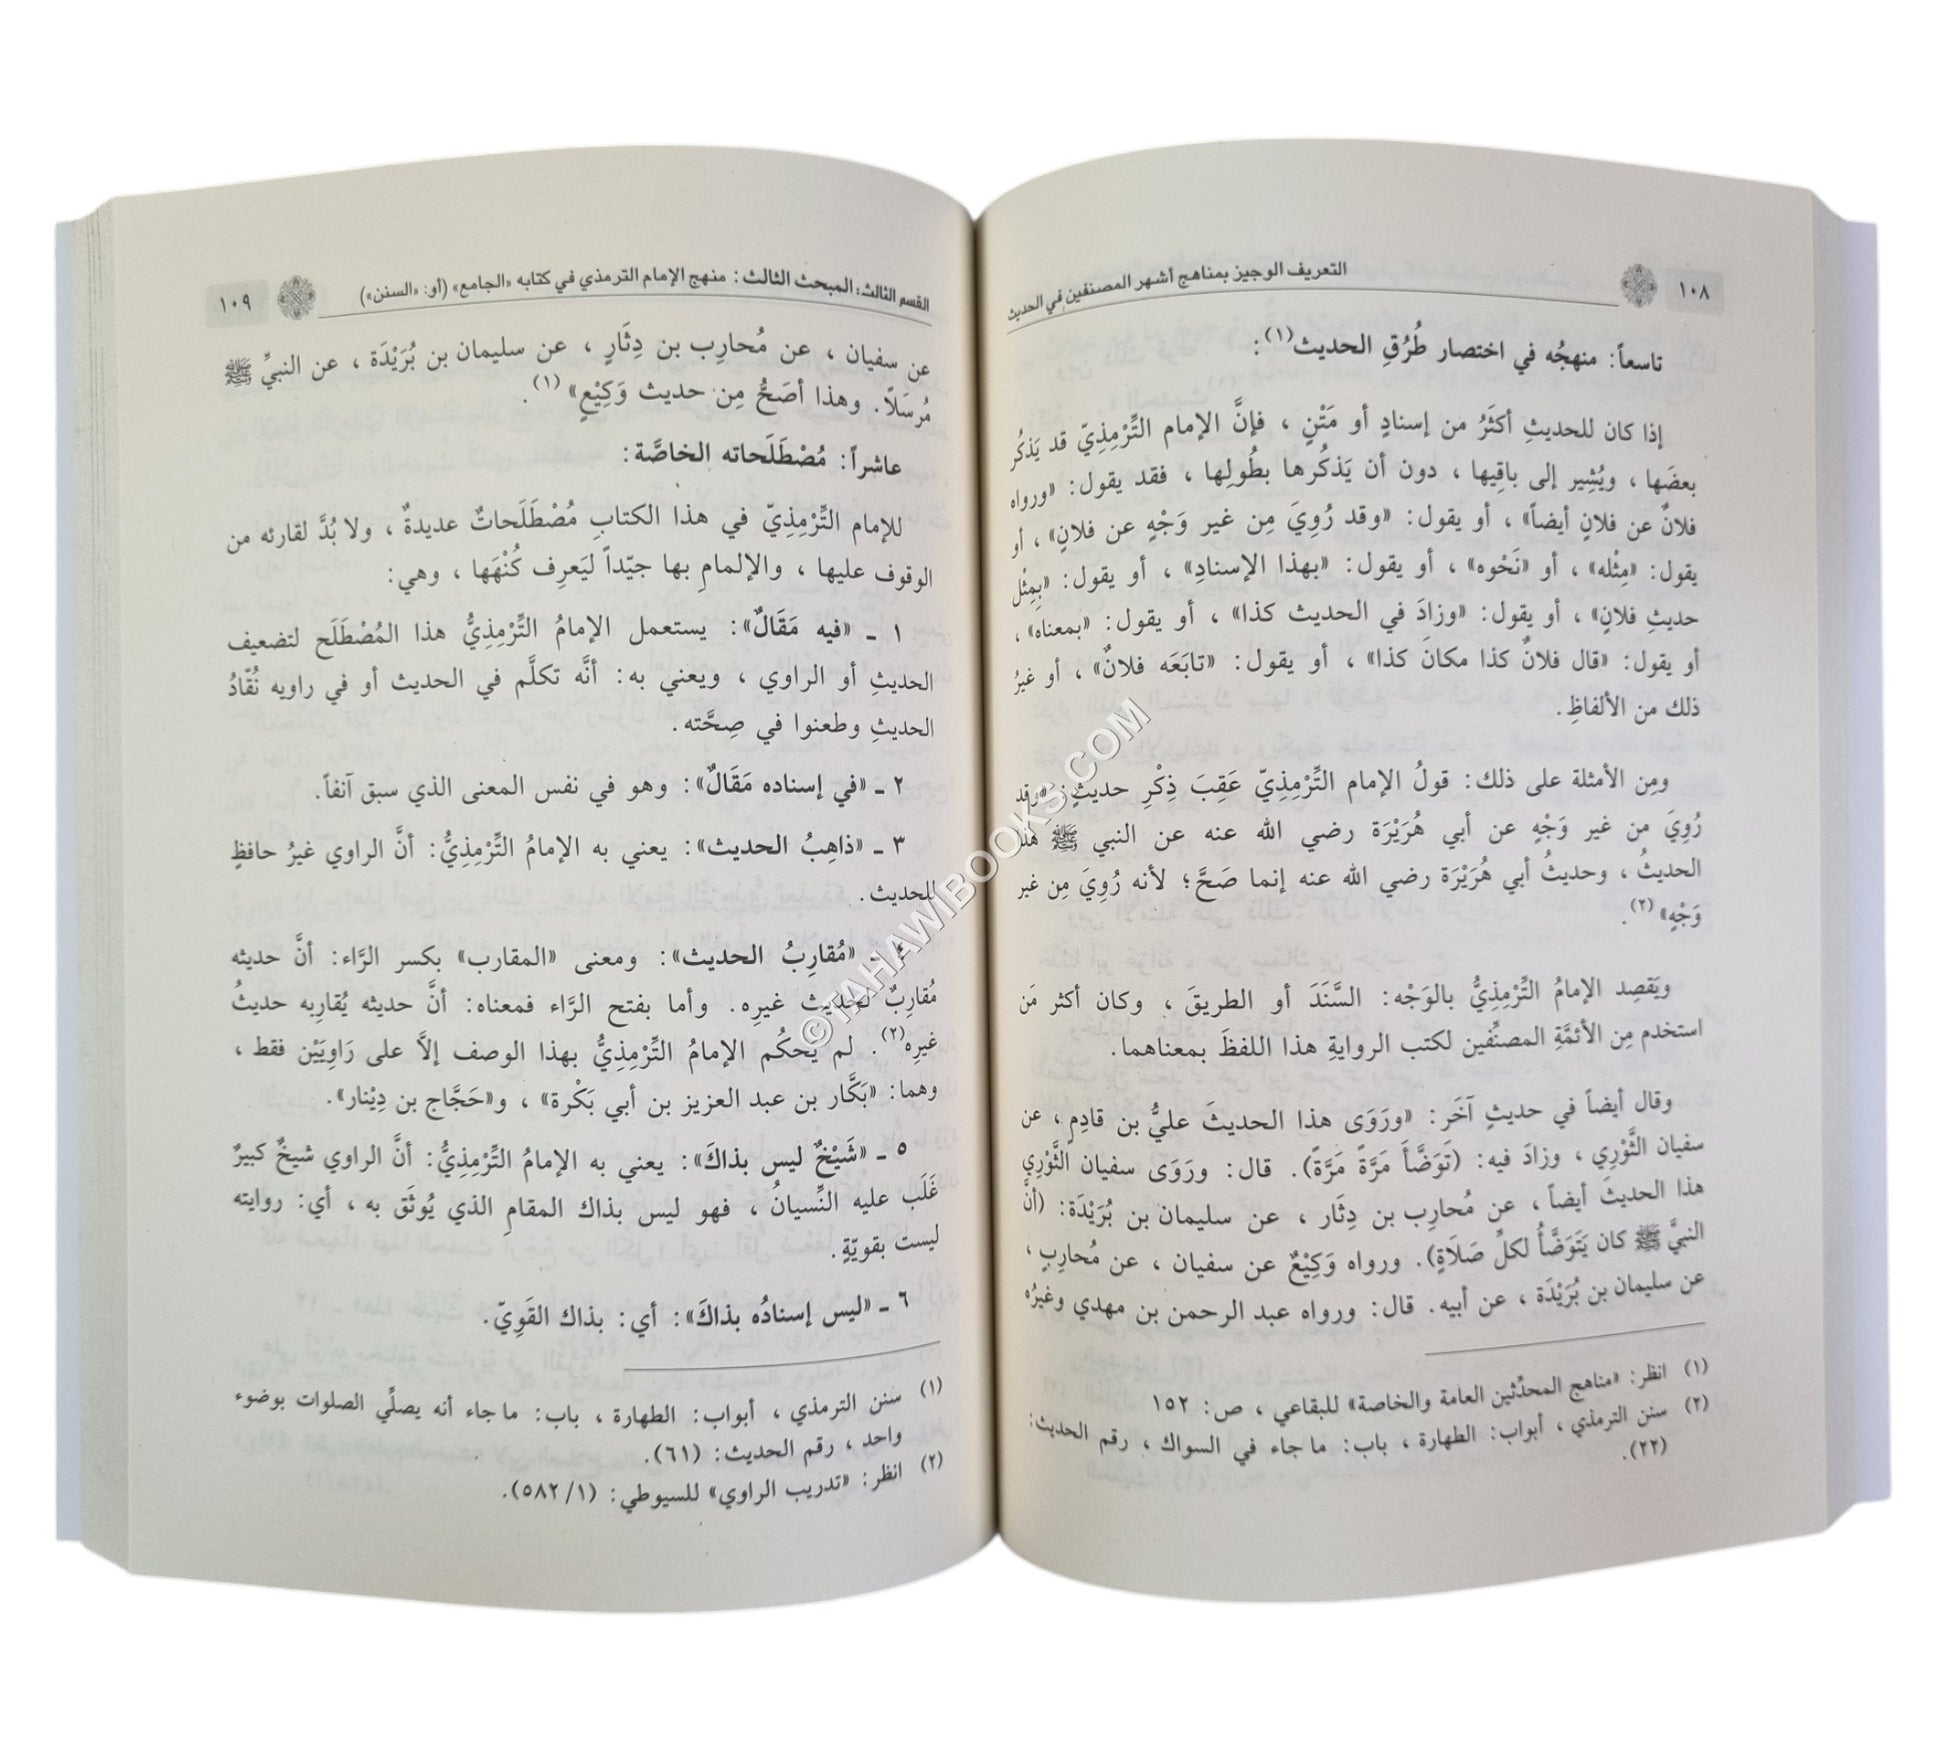 ١٠٨
التعريف الوجيز بمناهج أشهر المصنفين في الحديث
تاسعاً: منهجُه في اختصار طُرُقِ الحديث(١):
إذا كان للحديثِ أكثَرُ من إسنادٍ أو مَتْنٍ ، فإنَّ الإمام التِّرْمِذِيّ قد يَذكُر
بعضَها ، ويُشِير إلى باقِيها ، دون أن يَذكُرها بطُولِها ، فقد يقول: «ورواه
فلانٌ عن فلانٍ أيضاً» ، أو يقول: «وقد رُوِيَ مِن غير وَجْهٍ عن فلانٍ» ، أو
يقول: «مِثْله» ، أو «نَحْوه» ، أو يقول: «بهذا الإسنادِ» ، أو يقول: «بِمِثْل
حديثِ فلانٍ» ، أو يقول: «وزادَ في الحديث كذا» ، أو يقول: «بمعناه» ،
أو يقول: «قال فلانٌ كذا مكانَ كذا» ، أو يقول: «تابَعَه فلانٌ» ، أو غيرُ
ذلك من الألفاظِ.
ومِن الأمثلة على ذلك: قولُ الإمام التِّرْمِذِيّ عَقِبَ ذِكْرِ حديثٍ: «وقد
رُوِيَ من غير وَجْهٍ عن أبي هُرَيْرَة رضي الله عنه عن النبي ﷺ هذا
الحديثُ ، وحديثُ أبي هُرَيْرَة رضي الله عنه إنما صَحَّ؛ لأنه رُوِيَ مِن غير
وَجْهٍ»(٢).
ويَقصِد الإمامُ التِّرْمِذِيُّ بالوَجْه: السَّنَدَ أو الطريقَ ، وكان أكثر مَن
استخدم مِن الأئمَّةِ المصنِّفين لكتب الروايةِ هذا اللفظَ بمعناهما.
وقال أيضاً في حديثٍ آخَر: «ورَوَى هذا الحديثَ عليُّ بن قادِمٍ ، عن
سفيان الثَّوْرِي ، وزادَ فيه: (تَوَضَّأَ مَرَّةً مَرَّةً). قال: ورَوَى سفيان الثَّوْرِي
هذا الحديثَ أيضاً ، عن مُحارِب بن دِثَار ، عن سليمان بن بُرَيْدَة: (أنَّ
النبيَّ ﷺ كان يَتَوَضَّأُ لكلِّ صَلَاةٍ). ورواه وَكِيْعٌ عن سفيان ، عن مُحارِبٍ ،
عن سليمان بن بُرَيْدَة ، عن أبيه. قال: ورواه عبد الرحمن بن مهدي وغيرُه
(١) انظر: «مناهج المحدِّثين العامة والخاصة» للبقاعي ، ص: ١٥٢
(٢) سنن الترمذي ، أبواب: الطهارة ، باب: ما جاء في السواك ، رقم الحديث:
(٢٢).
القسم الثالث: المبحث الثالث: منهج الإمام الترمذي في كتابه «الجامع» (أو: «السنن»)
١٠٩
عن سفيان ، عن مُحارِب بن دِثَارٍ ، عن سليمان بن بُرَيْدَة ، عن النبيِّ ﷺ
مُرسَلًا. وهذا أصَحُّ مِن حديث وَكِيْعٍ»(١).
عاشراً: مُصْطَلَحاته الخاصَّة:
للإمام التِّرْمِذِيّ في هذا الكتابِ مُصْطَلَحاتٌ عديدةٌ ، ولا بُدَّ لقارئه من
الوقوف عليها ، والإلمامِ بها جيّداً ليَعرِف كُنْهَها ، وهي:
١ ـ «فيه مَقَالٌ»: يستعمل الإمامُ التِّرْمِذِيُّ هذا المُصْطَلَح لتضعيف
الحديثِ أو الراوي ، ويعني به: أنَّه تكلَّم في الحديث أو في راويه نُقّادُ
الحديثِ وطعنوا في صِحَّته.
٢ ـ «في إسناده مَقَالٌ»: وهو في نفس المعنى الذي سبق آنفاً.
٣ ـ «ذاهِبُ الحديث»: يعني به الإمامُ التِّرْمِذِيُّ: أنَّ الراوي غيرُ حافظٍ
للحديث.
٤ ـ «مُقارِبُ الحديث»: ومعنى «المقارب» بكسر الرَّاء: أنَّ حديثه
مُقارِبٌ لحديث غيرِه. وأما بفتح الرَّاء فمعناه: أنَّ حديثه يُقارِبه حديثُ
غيرِه(٢). لم يَحكُم الإمامُ التِّرْمِذِيُّ بهذا الوصف إلاَّ على رَاوِيَيْن فقط ،
وهما: «بَكَّار بن عبد العزيز بن أبي بَكْرة» ، و«حَجَّاج بن دِيْنار».
٥ ـ «شَيْخٌ ليس بذاكَ»: يعني به الإمامُ التِّرْمِذِيُّ: أنَّ الراوي شيخٌ كبيرٌ
غَلَب عليه النِّسيانُ ، فهو ليس بذاك المقامِ الذي يُوثَق به ، أي: روايته
ليست بقويّةٍ.
٦ ـ «ليس إسنادُه بذاكَ»: أي: بذاك القَوِيّ.
(١) سنن الترمذي ، أبواب: الطهارة ، باب: ما جاء أنه يصلِّي الصلوات بوضوء
واحد ، رقم الحديث: (٦١).
(٢) انظر: «تدريب الراوي» للسيوطي: (١/ ٥٨٢).
©TAHAWIBOOKS.COM